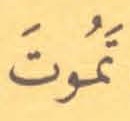 تَمُوتَ